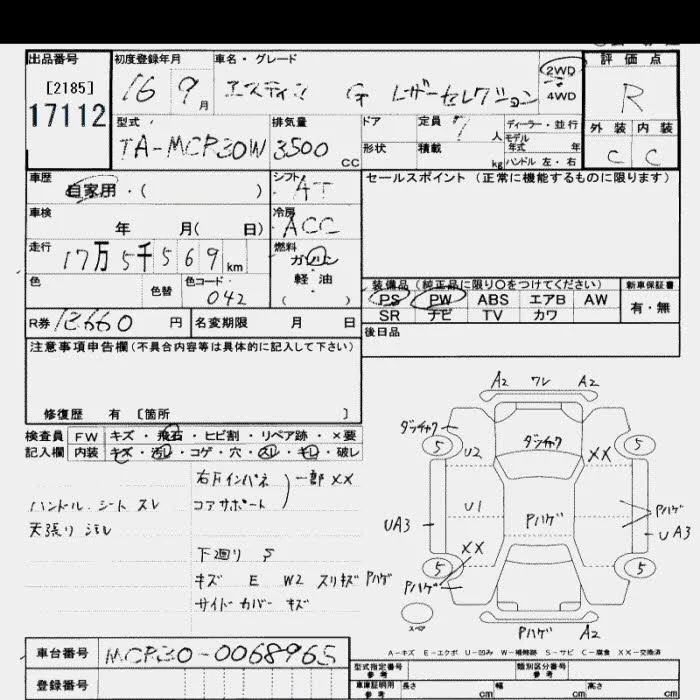 出品番号
[2185]
17112
初度登録年月
16 9月
車名・グレード
エスティマ G レザーセレクション
2WD
4WD
評価点
R
外装 内装
C C
型式
TA-MCR30W
排気量
3500 CC
ドア
形状
定員 7人
積載 kg
ディーラー・並行
モデル年式 年
ハンドル 左・右
車歴
自家用・( )
シフト
AT
車検
年 月( 日)
冷房
ACC
走行
17万5千569km
燃料
ガソリン
軽油
( )
色
色替
色コード
042
R券 12660 円
名変期限 月 日
セールスポイント(正常に機能するものに限ります)
装備品(純正品に限り〇をつけてください)
PS PW ABS エアB AW
SR ナビ TV カワ
新車保証書
有・無
後日品
注意事項申告欄(不具合内容等は具体的に記入して下さい)
修復歴 有 [箇所 ]
検査員記入欄
FW キズ・飛石・ヒビ割・リペア跡・×要
内装 キズ・汚レ・コゲ・穴・スレ・キレ・破レ
ハンドル シート スレ
天張り 汚レ
右Fインパネ
コアサポート
一部XX
下廻り S
キズ E W2 スリキズ Pハゲ
サイドカバー キズ
A2 ワレ A2
ダッチャク
5 5
U2 ダッチャク XX
U1 Pハゲ
UA3
Pハゲ
UA3
XX
5 5
Pハゲ
スペア
Pハゲ A2
A-キズ E-エクボ U-凹み W-補修跡 S-サビ C-腐食 XX-交換済
車台番号
MCR30-0068965
登録番号
型式指定番号
参考
類別区分番号
参考
車庫証明用
参考
長さ cm
幅 cm
高さ cm